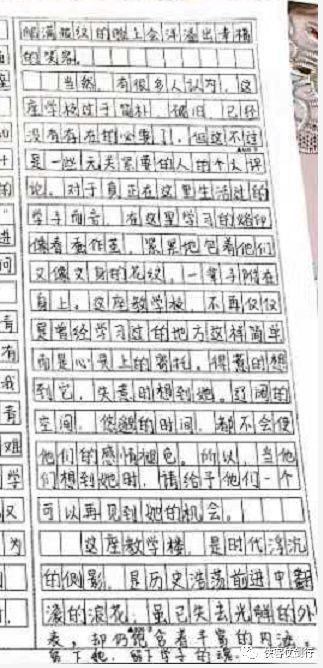 满皱纹的脸上会洋溢出幸福
的笑容。
当然，有很多人认为，这
座学校过于简朴、破旧，已经
没有存在的必要了，但这不过
是一些无关紧要的人的个人评
论。对于真正在这里生活过的
学子而言，在这里学习的烙印
像春蚕作茧，紧紧地包着他们
又像文身的花纹，一辈子附在
身上。这座教学楼，不再仅仅
是曾经学习过的地方这样简单
而是心灵上的寄托。得意时想
到它，失意时想到她。辽阔的
空间，悠邈的时间，都不会使
他们的感情褪色。所以，当他
们想到她时，请给予他们一个
可以再见到她的机会。
这座教学楼，是时代浮沉
的侧影，是历史浩荡前进中翻
滚的浪花，虽已失去光鲜的外
表，却仍包含着丰富的内涵。
留下她，留下学子的魂。
进
问
青
有
我
青
姐
学
又
为